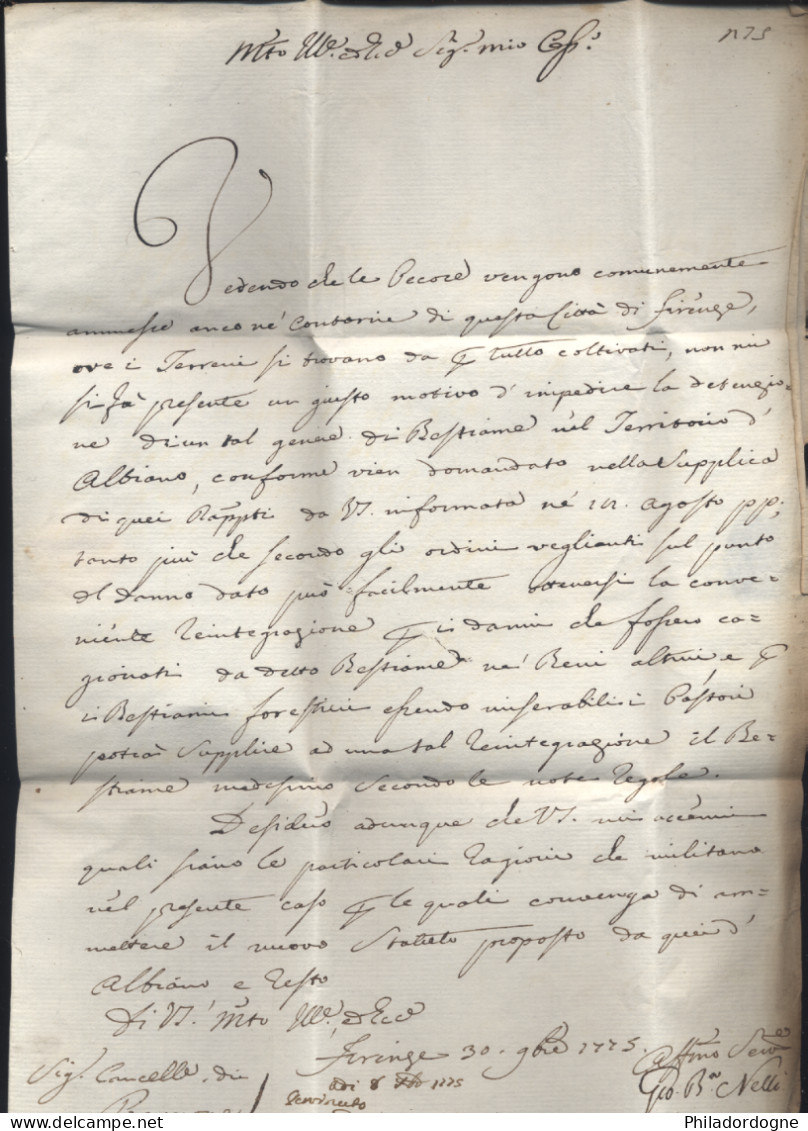 1775
Mto Ill.e ed Ecc.e Sig.r mio
Vedendo che le Pecore vengono comunemente
ammesse anco ne' contorni di questa Città di Firenze,
ove i Terreni si trovano da p tutto coltivati, non mi
si fà presente un giusto motivo d'impedire la detenzio=
ne di un tal genere di Bestiame nel Territorio d'
Albiano, conforme vien domandato nella Supplica
di quei Rappti da VS. informata ne' Agosto pp:
tanto più che secondo gli ordini veglianti sul punto
del danno dato può facilmente ottenersi la conve=
niente reintegrazione p i danni che fossero ca=
gionati da detto Bestiame ne' Beni altrui, e p
i Bestiami forestieri essendo miserabili i Pastori
potrà supplire ad una tal reintegrazione il Be=
stiame medesimo secondo le note regole.
Desidero adunque che VS. mi accenni
quali siano le particolari ragioni che militano
nel presente caso p le quali convenga di am=
mettere il nuovo Statuto proposto da quei d'
Albiano e resto
Di VS. Mto Ill.e ed Ecc.e
Firenze 30. 9bre 1775.
Affmo Serv.e
Sig. Cancell.e di
adi 8 Xbre 1775
Gio. B.a Nelli